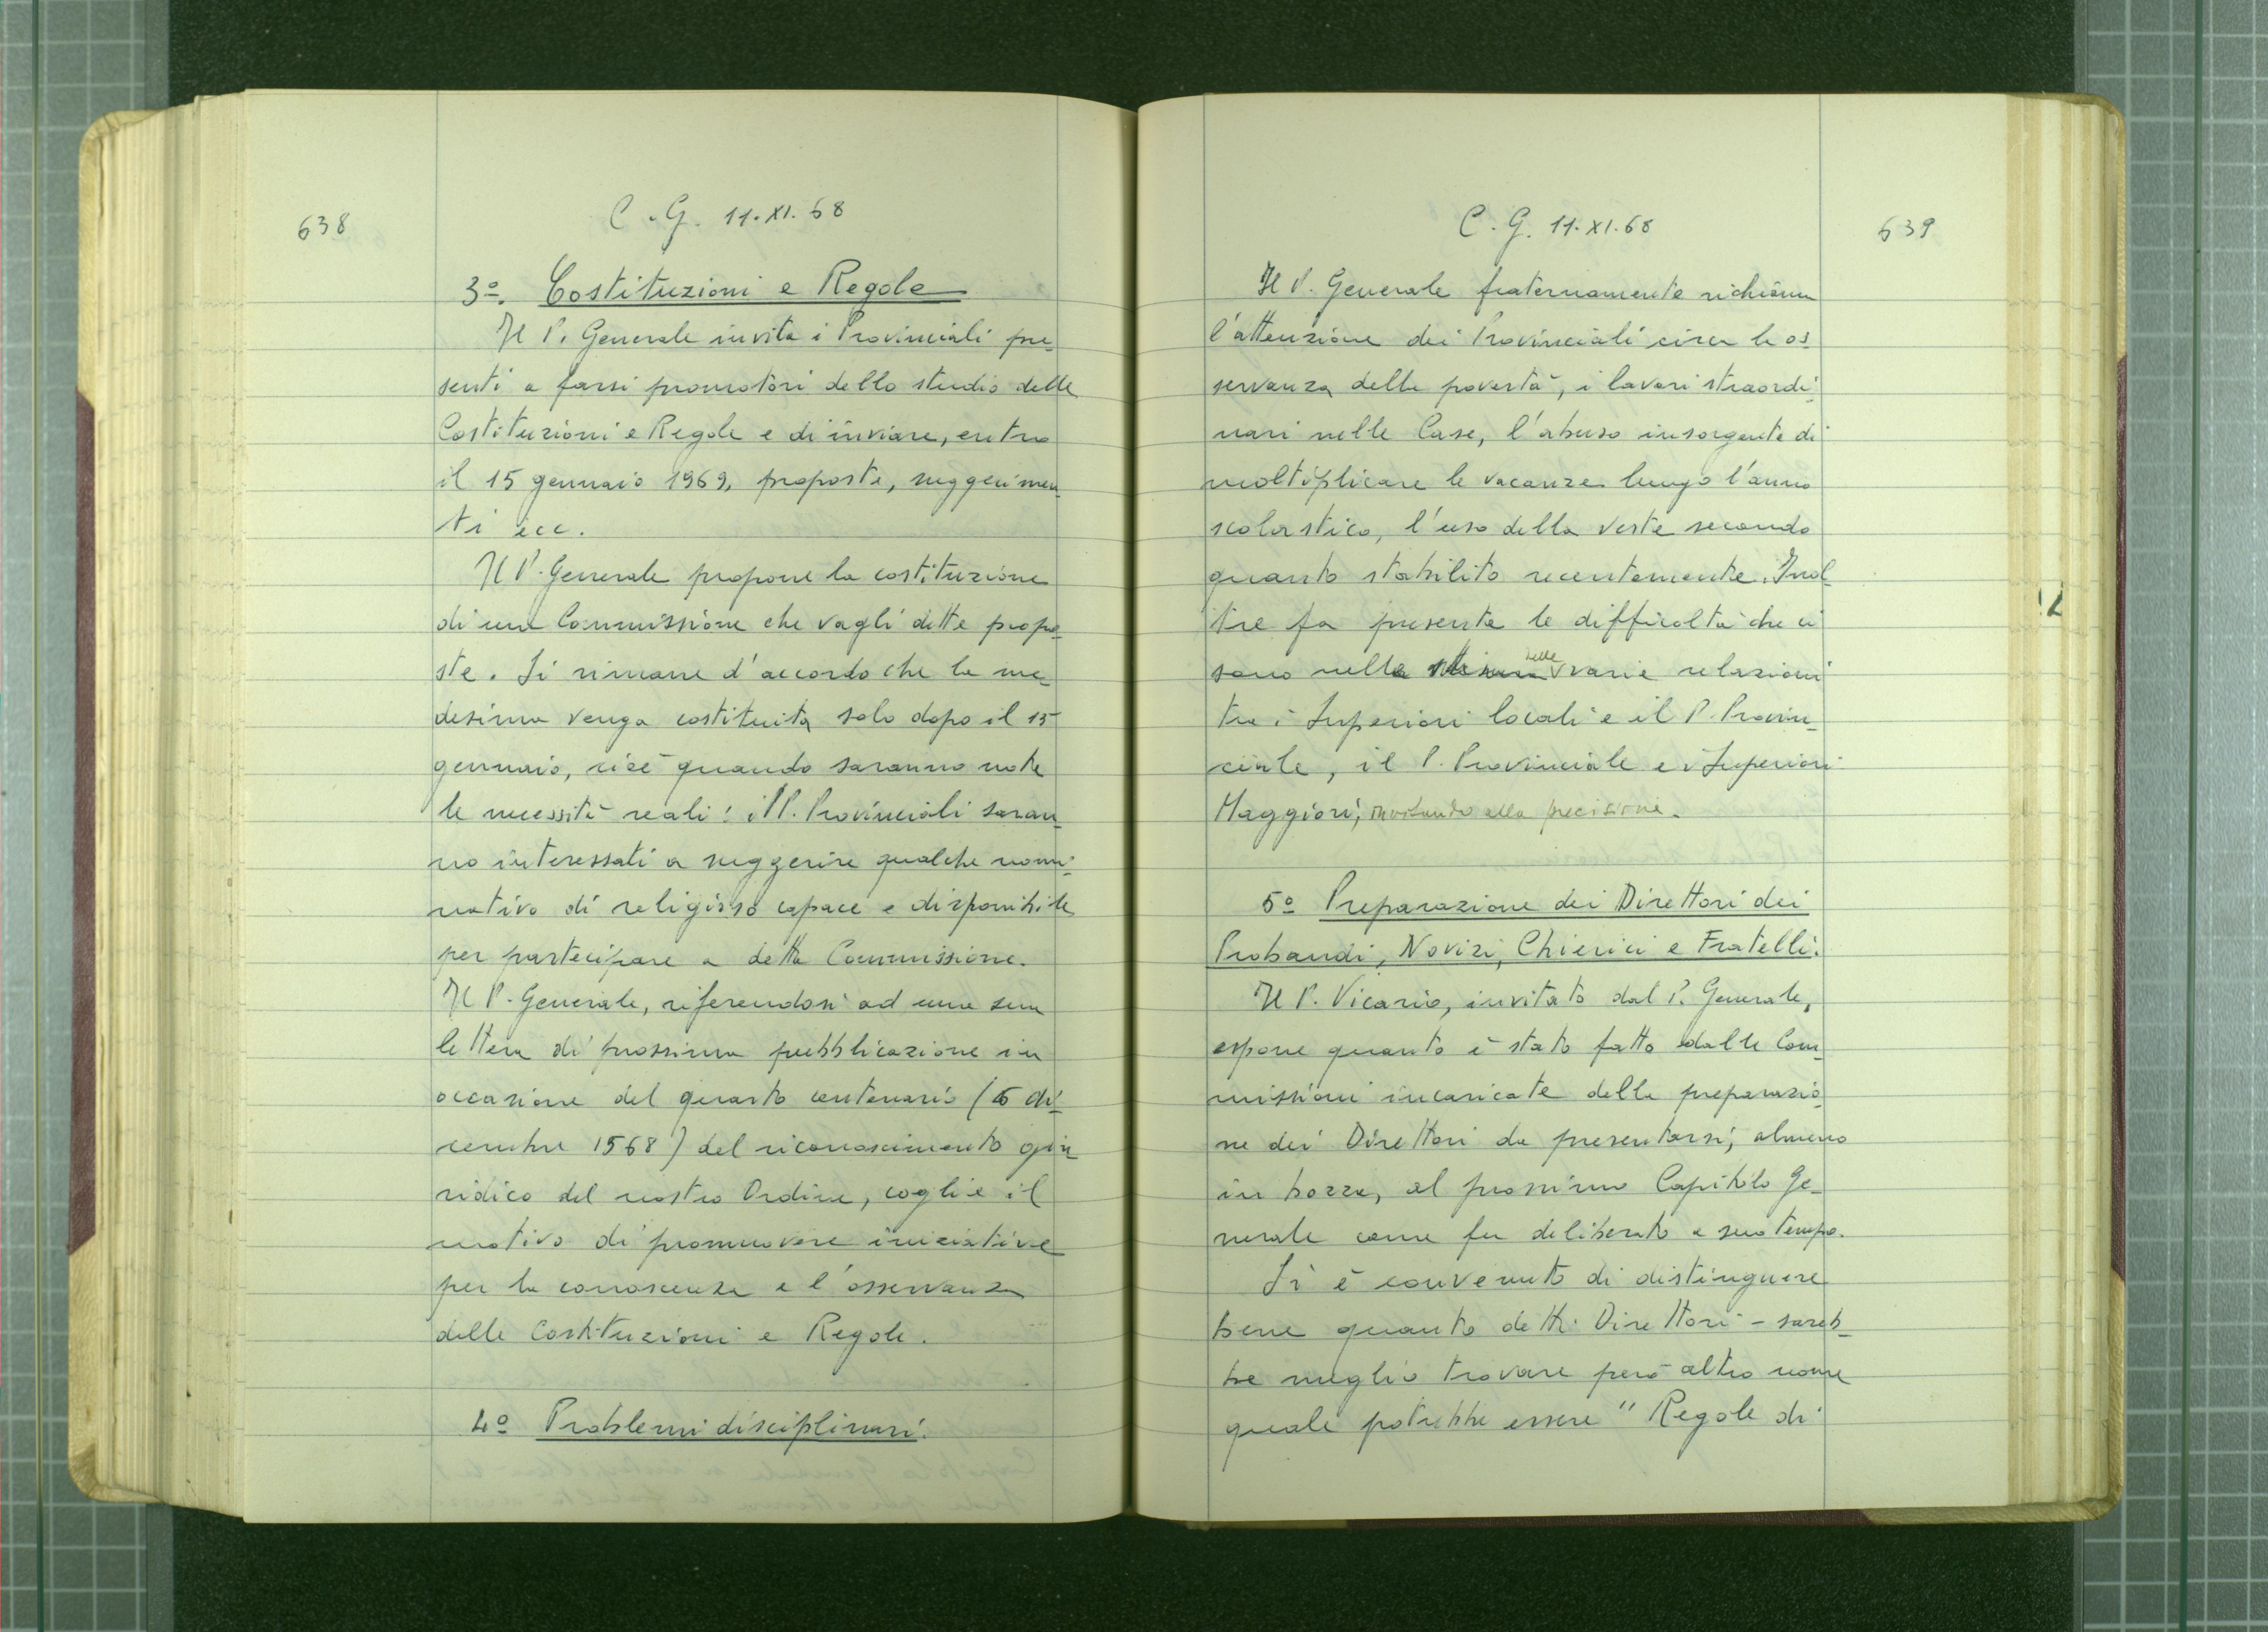 638
C.G. 11.XI.68
3º. Costituzioni e Regole
Il P. Generale invita i Provinciali pre-
senti a farsi promotori dello studio delle
Costituzioni e Regole e di inviare, entro
il 15 gennaio 1969, proposte, suggerimen-
ti ecc.
Il P. Generale propone la costituzione
di una Commissione che vagli dette propo-
ste. Si rimane d'accordo che la me-
desima venga costituita solo dopo il 15
gennaio, cioè quando saranno note
le necessità reali: i PP. Provinciali saran-
no interessati a suggerire qualche nomi-
nativo di religioso capace e disponibile
per partecipare a detta Commissione.
Il P. Generale, riferendosi ad una sua
lettera di prossima pubblicazione in
occasione del quarto centenario (6 di-
cembre 1568) del riconoscimento giu-
ridico del nostro Ordine, coglie il
motivo di promuovere iniziative
per la conoscenza e l'osservanza
delle Costituzioni e Regole.
4º Problemi disciplinari.
C.G. 11.XI.68
639
Il P. Generale fraternamente richiama
l'attenzione dei Provinciali circa le os-
servanza della povertà, i lavori straordi-
nari nelle Case, l'abuso insorgente di
moltiplicare le vacanze lungo l'anno
scolastico, l'uso della veste secondo
quanto stabilito recentemente. Inol-
tre fa presente le difficoltà che ci
sono nella nelle varie relazioni
tra i Superiori locali e il P. Provin-
ciale, il P. Provinciale e i Superiori
Maggiori, invitando alla precisione.
5º Preparazione dei Direttori dei
Probandi, Novizi, Chierici e Fratelli.
Il P. Vicario, invitato dal P. Generale,
espone quanto è stato fatto dalle Com-
missioni incaricate della preparazio-
ne dei Direttori da presentarsi, almeno
in bozza, al prossimo Capitolo Ge-
nerale come fu deliberato a suo tempo.
Si è convenuto di distinguere
bene quanto detti Direttori - sareb-
be meglio trovare però altro nome
quale potrebbe essere "Regole di